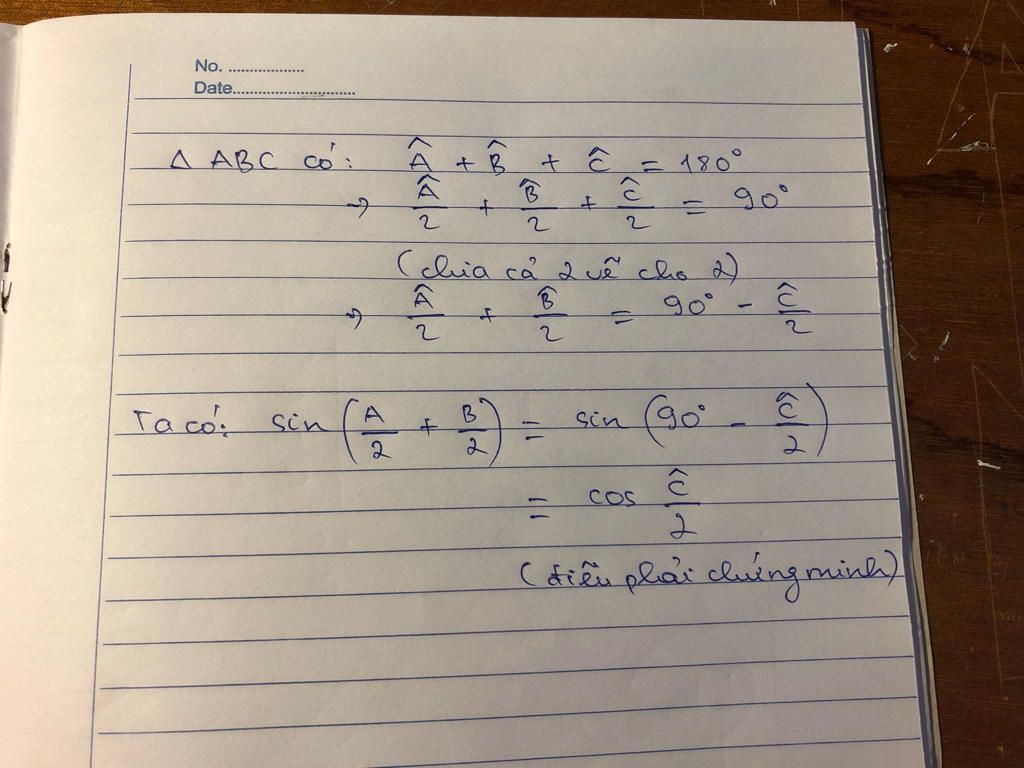 No. ..................
Date.............................
Δ ABC có: Â + B̂ + Ĉ = 180°
→ Â/2 + B̂/2 + Ĉ/2 = 90°
(chia cả 2 vế cho 2)
→ Â/2 + B̂/2 = 90° - Ĉ/2
Ta có: sin(A/2 + B/2) = sin(90° - Ĉ/2)
= cos Ĉ/2
(điều phải chứng minh)